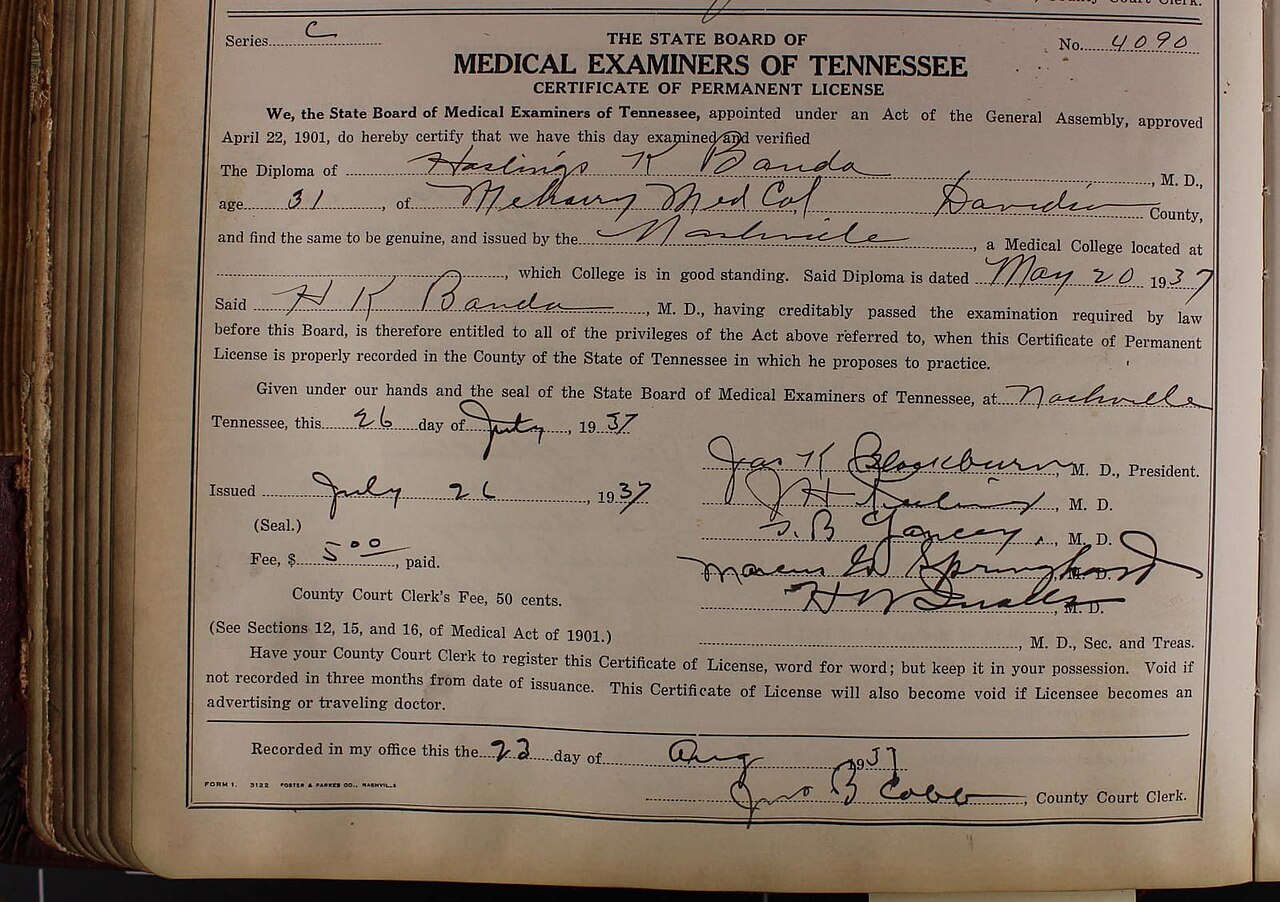 County Court Clerk.
Series C
No. 4090
THE STATE BOARD OF
MEDICAL EXAMINERS OF TENNESSEE
CERTIFICATE OF PERMANENT LICENSE
We, the State Board of Medical Examiners of Tennessee, appointed under an Act of the General Assembly, approved
April 22, 1901, do hereby certify that we have this day examined and verified
The Diploma of Hastings K Banda, M. D.,
age 31, of Meharry Med Col Davidson County,
and find the same to be genuine, and issued by the Nashville, a Medical College located at
, which College is in good standing. Said Diploma is dated May 20 1937
Said H K Banda, M. D., having creditably passed the examination required by law
before this Board, is therefore entitled to all of the privileges of the Act above referred to, when this Certificate of Permanent
License is properly recorded in the County of the State of Tennessee in which he proposes to practice.
Given under our hands and the seal of the State Board of Medical Examiners of Tennessee, at Nashville
Tennessee, this 26 day of July, 1937
Jas K Blackburn, M. D., President.
Issued July 26, 1937
J H, M. D.
(Seal.)
B Yancey, M. D.
Fee, $ 5 00, paid.
M. D.
County Court Clerk's Fee, 50 cents.
H W Qualls, M. D.
(See Sections 12, 15, and 16, of Medical Act of 1901.)
, M. D., Sec. and Treas.
Have your County Court Clerk to register this Certificate of License, word for word; but keep it in your possession. Void if
not recorded in three months from date of issuance. This Certificate of License will also become void if Licensee becomes an
advertising or traveling doctor.
Recorded in my office this the 23 day of Aug 1937
FORM 1. 3122 FOSTER & PARKES CO., NASHVILLE
Jno B Cobb, County Court Clerk.